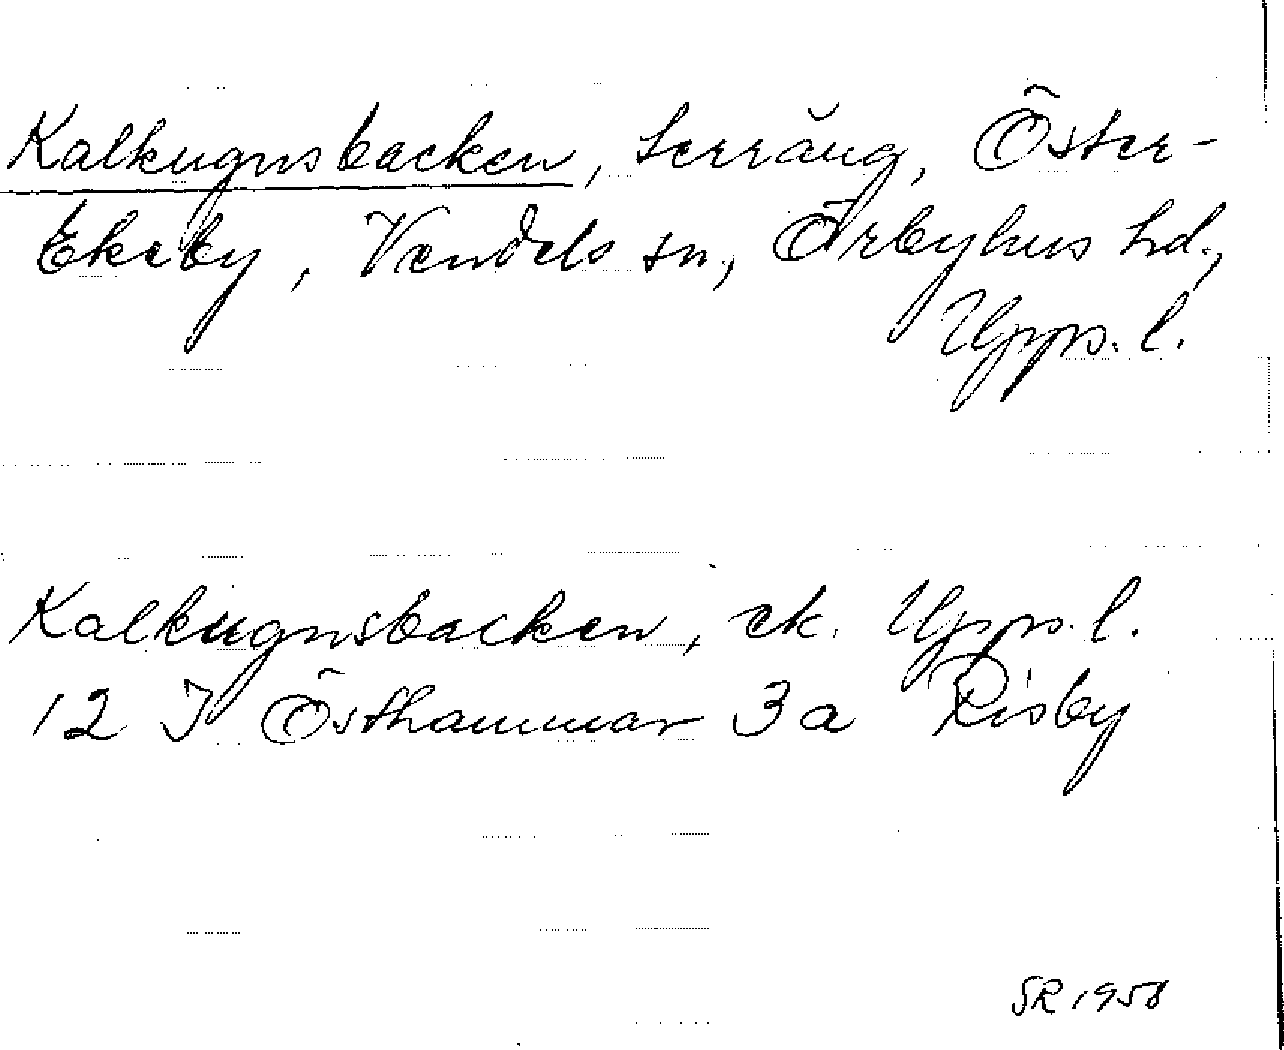 Kalkugnsbacken, terräng, Öster-
Ekeby, Vendels sn, Örbyhus hd,
Upps. l.
Kalkugnsbacken, ek. Upps. l.
12 I Östhammar 3 a Risby
SR 1958